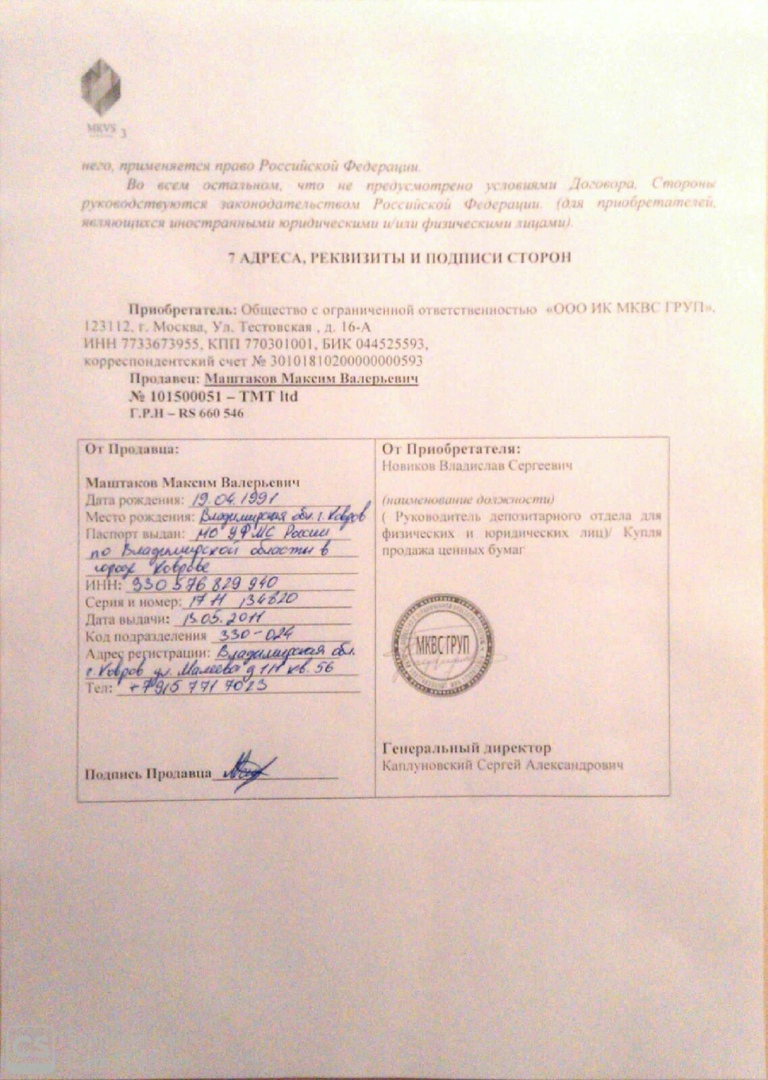 MKVS 3
него, применяется право Российской Федерации.
Во всем остальном, что не предусмотрено условиями Договора, Стороны
руководствуются законодательством Российской Федерации. (для приобретателей,
являющихся иностранными юридическими и/или физическими лицами).
7 АДРЕСА, РЕКВИЗИТЫ И ПОДПИСИ СТОРОН
Приобретатель: Общество с ограниченной ответственностью «ООО ИК МКВС ГРУП»,
123112, г. Москва, Ул. Тестовская , д. 16-А
ИНН 7733673955, КПП 770301001, БИК 044525593,
корреспондентский счет № 30101810200000000593
Продавец: Маштаков Максим Валерьевич
№ 101500051 – TMT ltd
Г.Р.Н – RS 660 546
От Продавца:
Маштаков Максим Валерьевич
Дата рождения: 19.04.1991
Место рождения: Владимирская обл. г. Ковров
Паспорт выдан: МО УФМС России
по Владимирской области в
городе Коврове
ИНН: 330 576 829 940
Серия и номер: 17 11 134820
Дата выдачи: 13.05.2011
Код подразделения 330-024
Адрес регистрации: Владимирская обл.
г. Ковров ул. Малеева д 1/1 кв. 56
Тел: +7 915 771 7023
Подпись Продавца
От Приобретателя:
Новиков Владислав Сергеевич
(наименование должности)
( Руководитель депозитарного отдела для
физических и юридических лиц)/ Купля
продажа ценных бумаг
МКВСГРУП
Генеральный директор
Каплуновский Сергей Александрович
CS